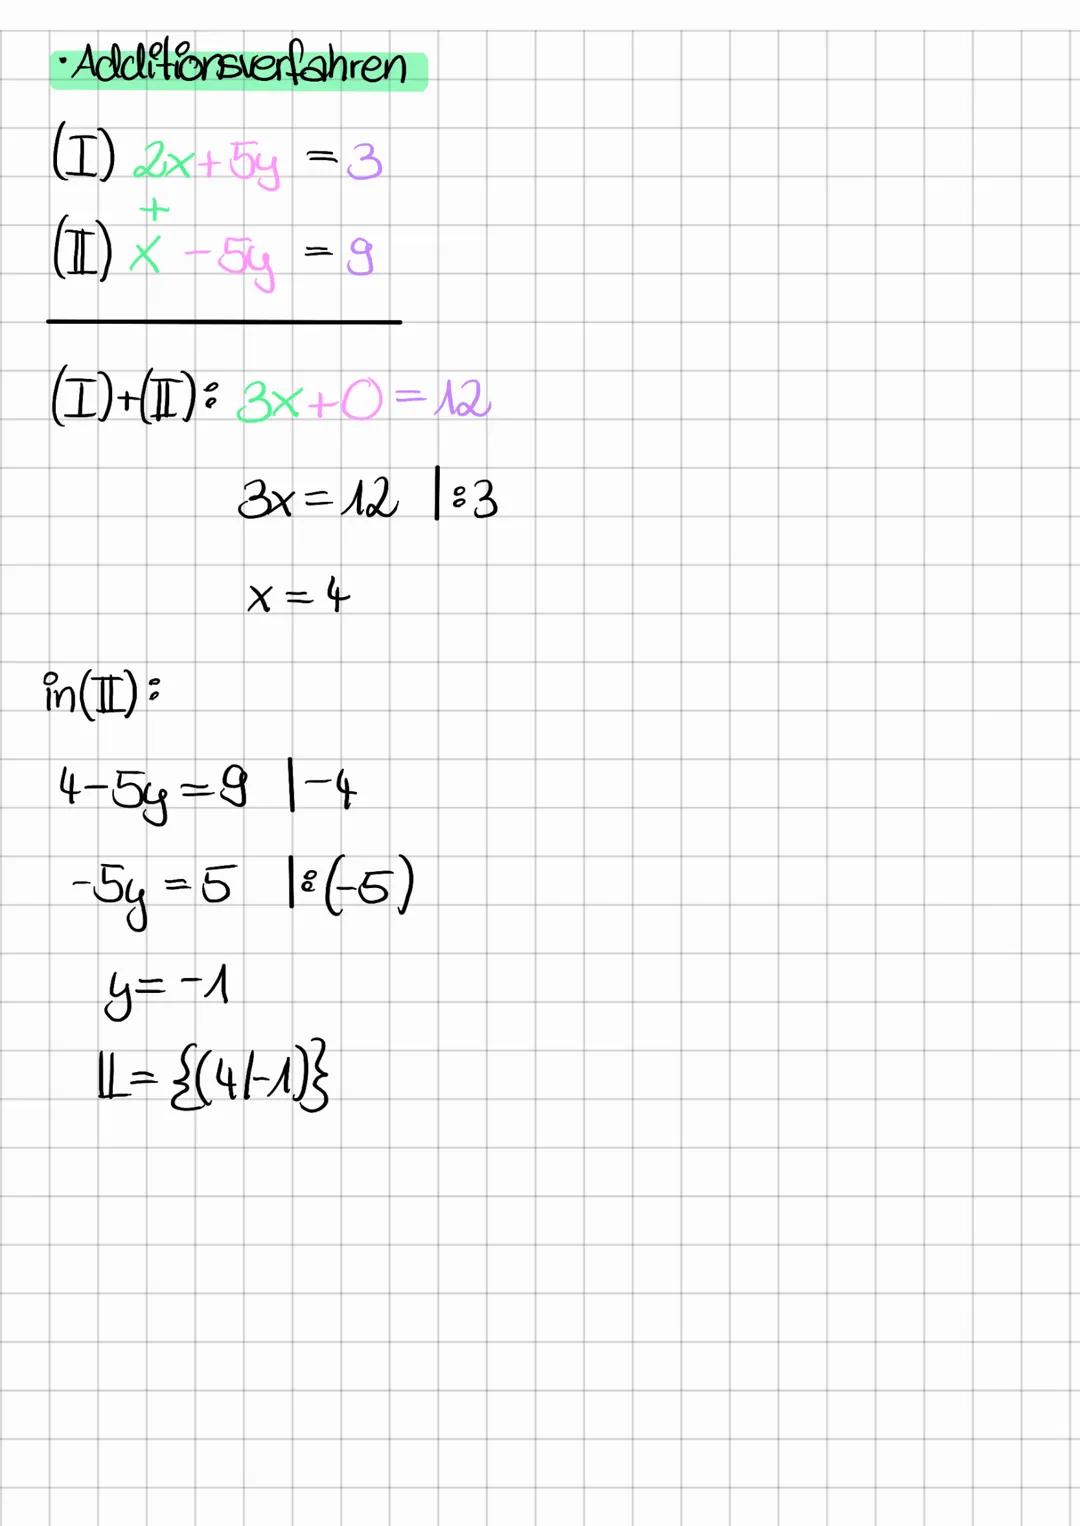 · Additionsverfahren
(I) 2x+5y = 3
+
(II) x -5y = 9
(I)+(II): 3x+0=12
3x=12 |:3
x=4
in(II):
4-5y=9 |-4
-5y=5 |:(-5)
y=-1
𝕃={(4|-1)}